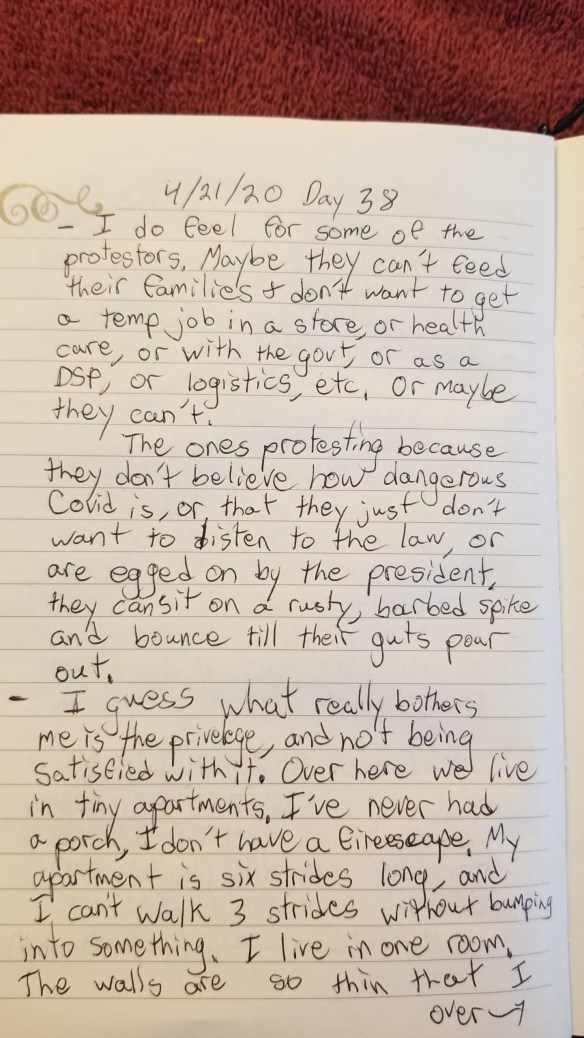 4/21/20 Day 38
- I do feel for some of the
protestors. Maybe they can't feed
their families & don't want to get
a temp job in a store, or health
care, or with the govt, or as a
DSP, or logistics, etc. Or maybe
they can't.
The ones protesting because
they don't believe how dangerous
Covid is, or that they just don't
want to listen to the law, or
are egged on by the president,
they can sit on a rusty, barbed spike
and bounce till their guts pour
out.
- I guess what really bothers
me is the privelege, and not being
satisfied with it. Over here we live
in tiny apartments. I've never had
a porch, I don't have a fireescape. My
apartment is six strides long, and
I can't walk 3 strides without bumping
into something. I live in one room.
The walls are so thin that I
over →